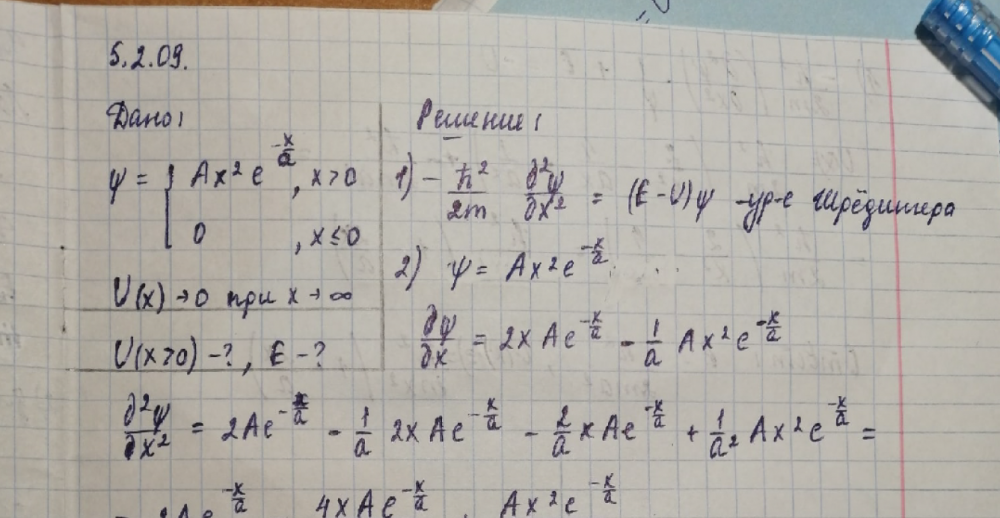 5.2.09.
Дано:
ψ = { Ax² e^{-x/a}, x > 0
0, x ≤ 0
U(x) → 0 при x → ∞
U(x>0) - ?, E - ?
Решение:
1) - ħ²/2m ∂²ψ/∂x² = (E - U)ψ - ур-е Шрёдингера
2) ψ = Ax² e^{-x/a}
∂ψ/∂x = 2x A e^{-x/a} - 1/a Ax² e^{-x/a}
∂²ψ/∂x² = 2A e^{-x/a} - 1/a 2x A e^{-x/a} - 2/a x A e^{-x/a} + 1/a² Ax² e^{-x/a} =
4x A e^{-x/a} Ax² e^{-x/a}